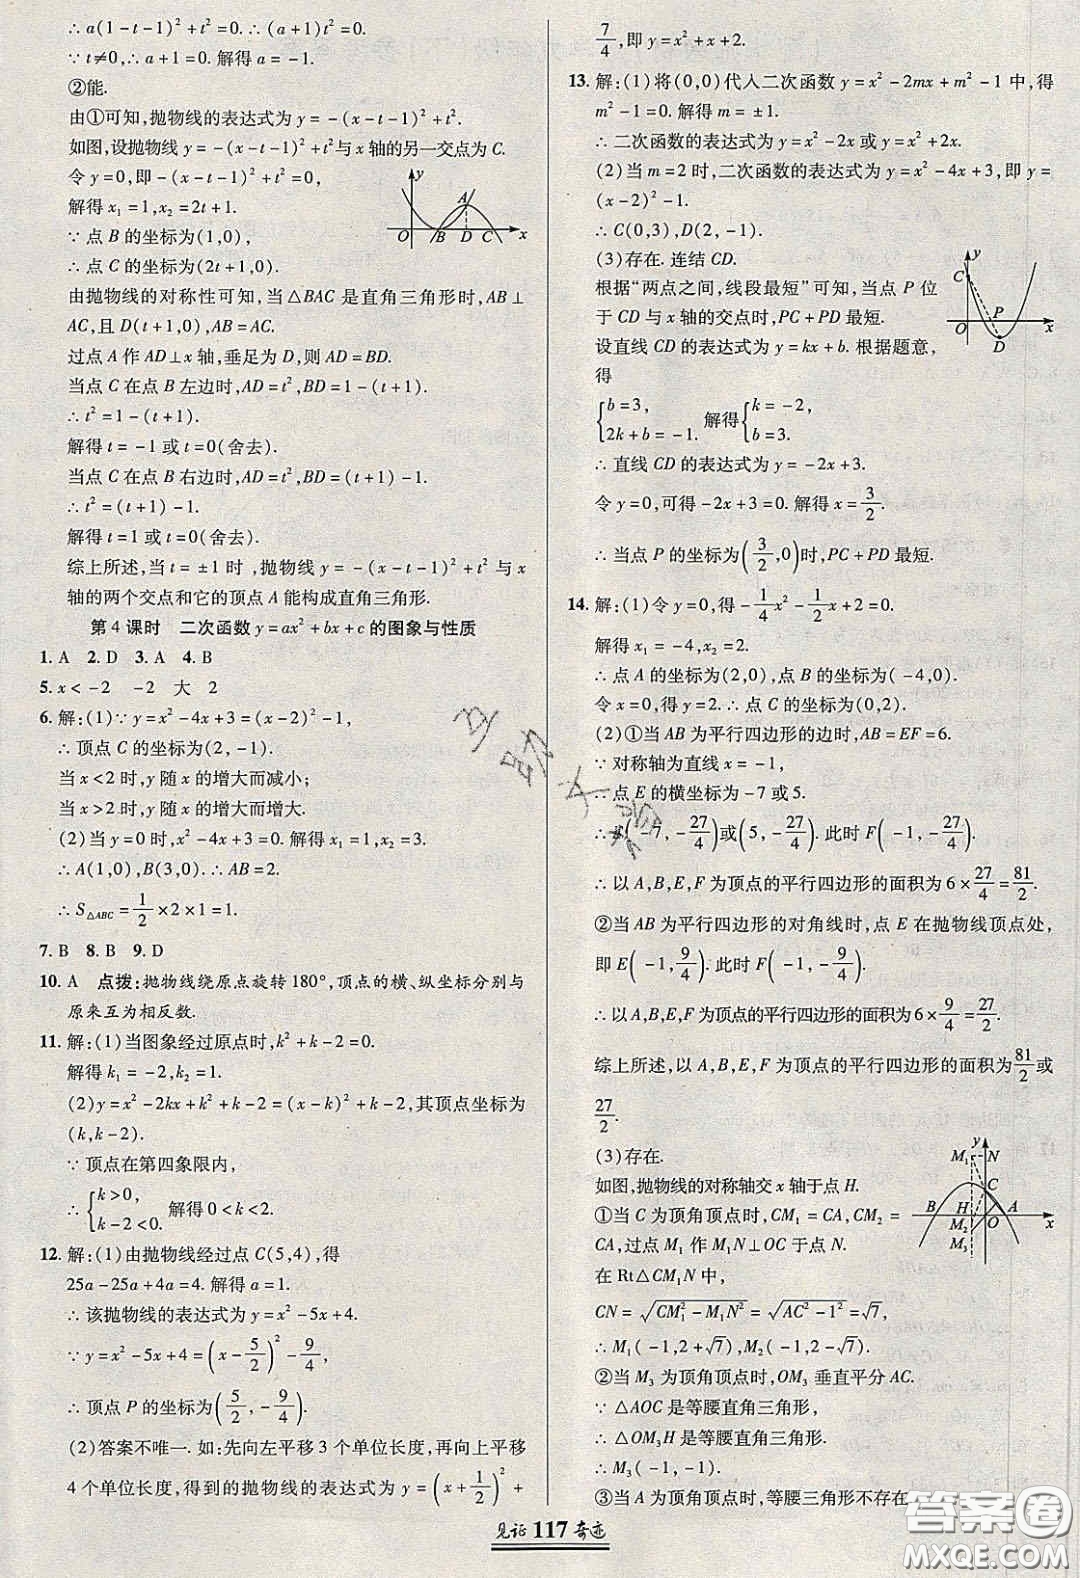 ∴ a(1-t-1)²+t²=0. ∴ at²+t²=0.
∵ t≠0, ∴ a+1=0. 解得 a=-1.
②能.
由①可知,抛物线的表达式为 y=-(x-t-1)²+t².
如图,设抛物线 y=-(x-t-1)²+t²与 x 轴的另一交点为 C.
令 y=0,即-(x-t-1)²+t²=0,
解得 x₁=1,x₂=2t+1.
∵ 点 B 的坐标为(1,0),
∴ 点 C 的坐标为(2t+1,0).
由抛物线的对称性可知,当△BAC 是直角三角形时,AB⊥
AC,且 D(t+1,0),AB=AC.
过点 A 作 AD⊥x 轴,垂足为 D,则 AD=BD.
当点 C 在点 B 左边时,AD=t²,BD=1-(t+1).
∴ t²=1-(t+1).
解得 t=-1 或 t=0(舍去).
当点 C 在点 B 右边时,AD=t²,BD=(t+1)-1.
∴ t²=(t+1)-1.
解得 t=1 或 t=0(舍去).
综上所述,当 t=±1 时,抛物线 y=-(x-t-1)²+t² 与 x
轴的两个交点和它的顶点 A 能构成直角三角形.
y
A
O B D C x
第 4 课时 二次函数 y=ax²+bx+c 的图象与性质
1. A 2. D 3. A 4. B
5. x<-2 -2 大 2
6. 解:(1)∵ y=x²-4x+3=(x-2)²-1,
∴ 顶点 C 的坐标为(2,-1).
当 x<2 时,y 随 x 的增大而减小;
当 x>2 时,y 随 x 的增大而增大.
(2)当 y=0 时,x²-4x+3=0. 解得 x₁=1,x₂=3.
∴ A(1,0),B(3,0). ∴ AB=2.
∴ S△ABC=1/2×2×1=1.
7. B 8. B 9. D
10. A 点拨:抛物线绕原点旋转 180°,顶点的横、纵坐标分别与
原来互为相反数.
11. 解:(1)当图象经过原点时,k²+k-2=0.
解得 k₁=-2,k₂=1.
(2)y=x²-2kx+k²+k-2=(x-k)²+k-2,其顶点坐标为
(k,k-2).
∵ 顶点在第四象限内,
∴ {k>0, k-2<0. 解得 0<k<2.
12. 解:(1)由抛物线经过点 C(5,4),得
25a-25a+4a=4. 解得 a=1.
∴ 该抛物线的表达式为 y=x²-5x+4.
∵ y=x²-5x+4=(x-5/2)²-9/4,
∴ 顶点 P 的坐标为(5/2,-9/4).
(2)答案不唯一. 如:先向左平移 3 个单位长度,再向上平移
4 个单位长度,得到的抛物线的表达式为 y=(x+1/2)²+
7/4,即 y=x²+x+2.
13. 解:(1)将(0,0)代入二次函数 y=x²-2mx+m²-1 中,得
m²-1=0. 解得 m=±1.
∴ 二次函数的表达式为 y=x²-2x 或 y=x²+2x.
(2)当 m=2 时,二次函数的表达式为 y=x²-4x+3,即 y=
(x-2)²-1.
∴ C(0,3),D(2,-1).
(3)存在. 连结 CD.
根据“两点之间,线段最短”可知,当点 P 位
于 CD 与 x 轴的交点时,PC+PD 最短.
设直线 CD 的表达式为 y=kx+b. 根据题意,
得
{b=3, 2k+b=-1. 解得{k=-2, b=3.
∴ 直线 CD 的表达式为 y=-2x+3.
令 y=0,可得-2x+3=0. 解得 x=3/2.
∴ 当点 P 的坐标为(3/2,0)时,PC+PD 最短.
y
C
P
O x
D
14. 解:(1)令 y=0,得-1/4x²-1/2x+2=0.
解得 x₁=-4,x₂=2.
∴ 点 A 的坐标为(2,0),点 B 的坐标为(-4,0).
令 x=0,得 y=2. ∴ 点 C 的坐标为(0,2).
(2)①当 AB 为平行四边形的边时,AB=EF=6.
∵ 对称轴为直线 x=-1,
∴ 点 E 的横坐标为-7 或 5.
∴ E(-7,-27/4)或(5,-27/4). 此时 F(-1,-27/4).
∴ 以 A,B,E,F 为顶点的平行四边形的面积为 6×27/4=81/2.
②当 AB 为平行四边形的对角线时,点 E 在抛物线顶点处,
即 E(-1,9/4). 此时 F(-1,-9/4).
∴ 以 A,B,E,F 为顶点的平行四边形的面积为 6×9/4=27/2.
综上所述,以 A,B,E,F 为顶点的平行四边形的面积为81/2或
27/2.
(3)存在.
如图,抛物线的对称轴交 x 轴于点 H.
①当 C 为顶角顶点时,CM₁=CA,CM₂=
CA,过点 M₁ 作 M₁N⊥OC 于点 N.
在 Rt△CM₁N 中,
CN=√(CM₁²-M₁N²)=√(AC²-1²)=√7,
∴ M₁(-1,2+√7),M₂(-1,2-√7).
②当 M₃ 为顶角顶点时,OM₃ 垂直平分 AC.
∵ △AOC 是等腰直角三角形,
∴ △OM₃H 是等腰直角三角形.
∴ M₃(-1,-1).
③当 A 为顶角顶点时,等腰三角形不存在
y
M₁ N
C
B H A
M₂ O x
M₃
见证 117 奇迹
答案圈
MXQE.COM